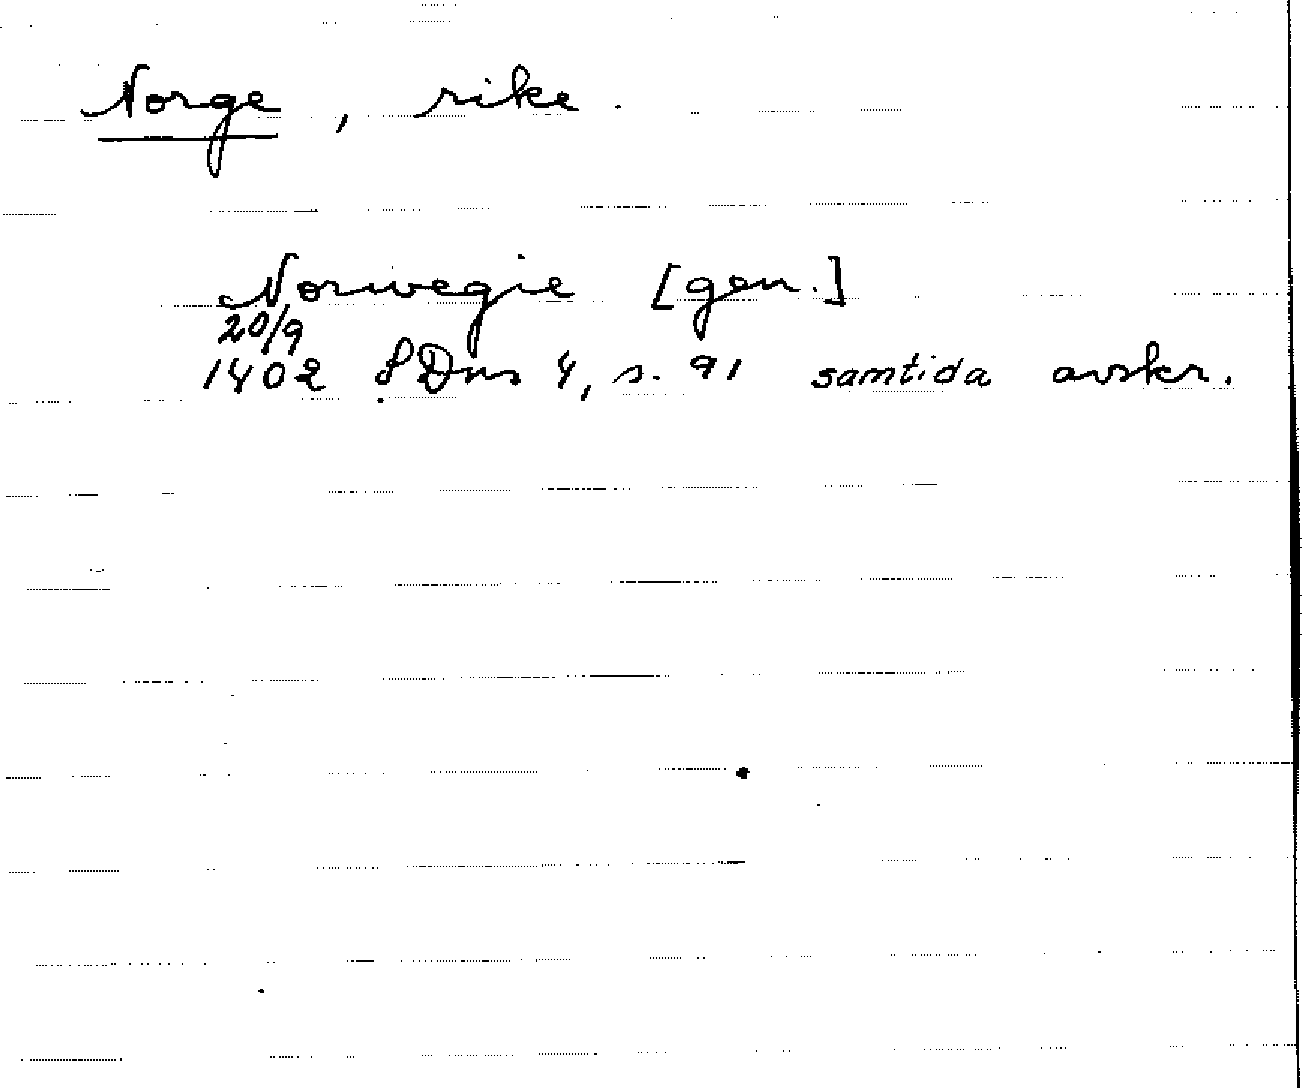 Norge, rike.
Norwegie [gen.]
20/9
1402 SDns 4, s. 91 samtida avskr.